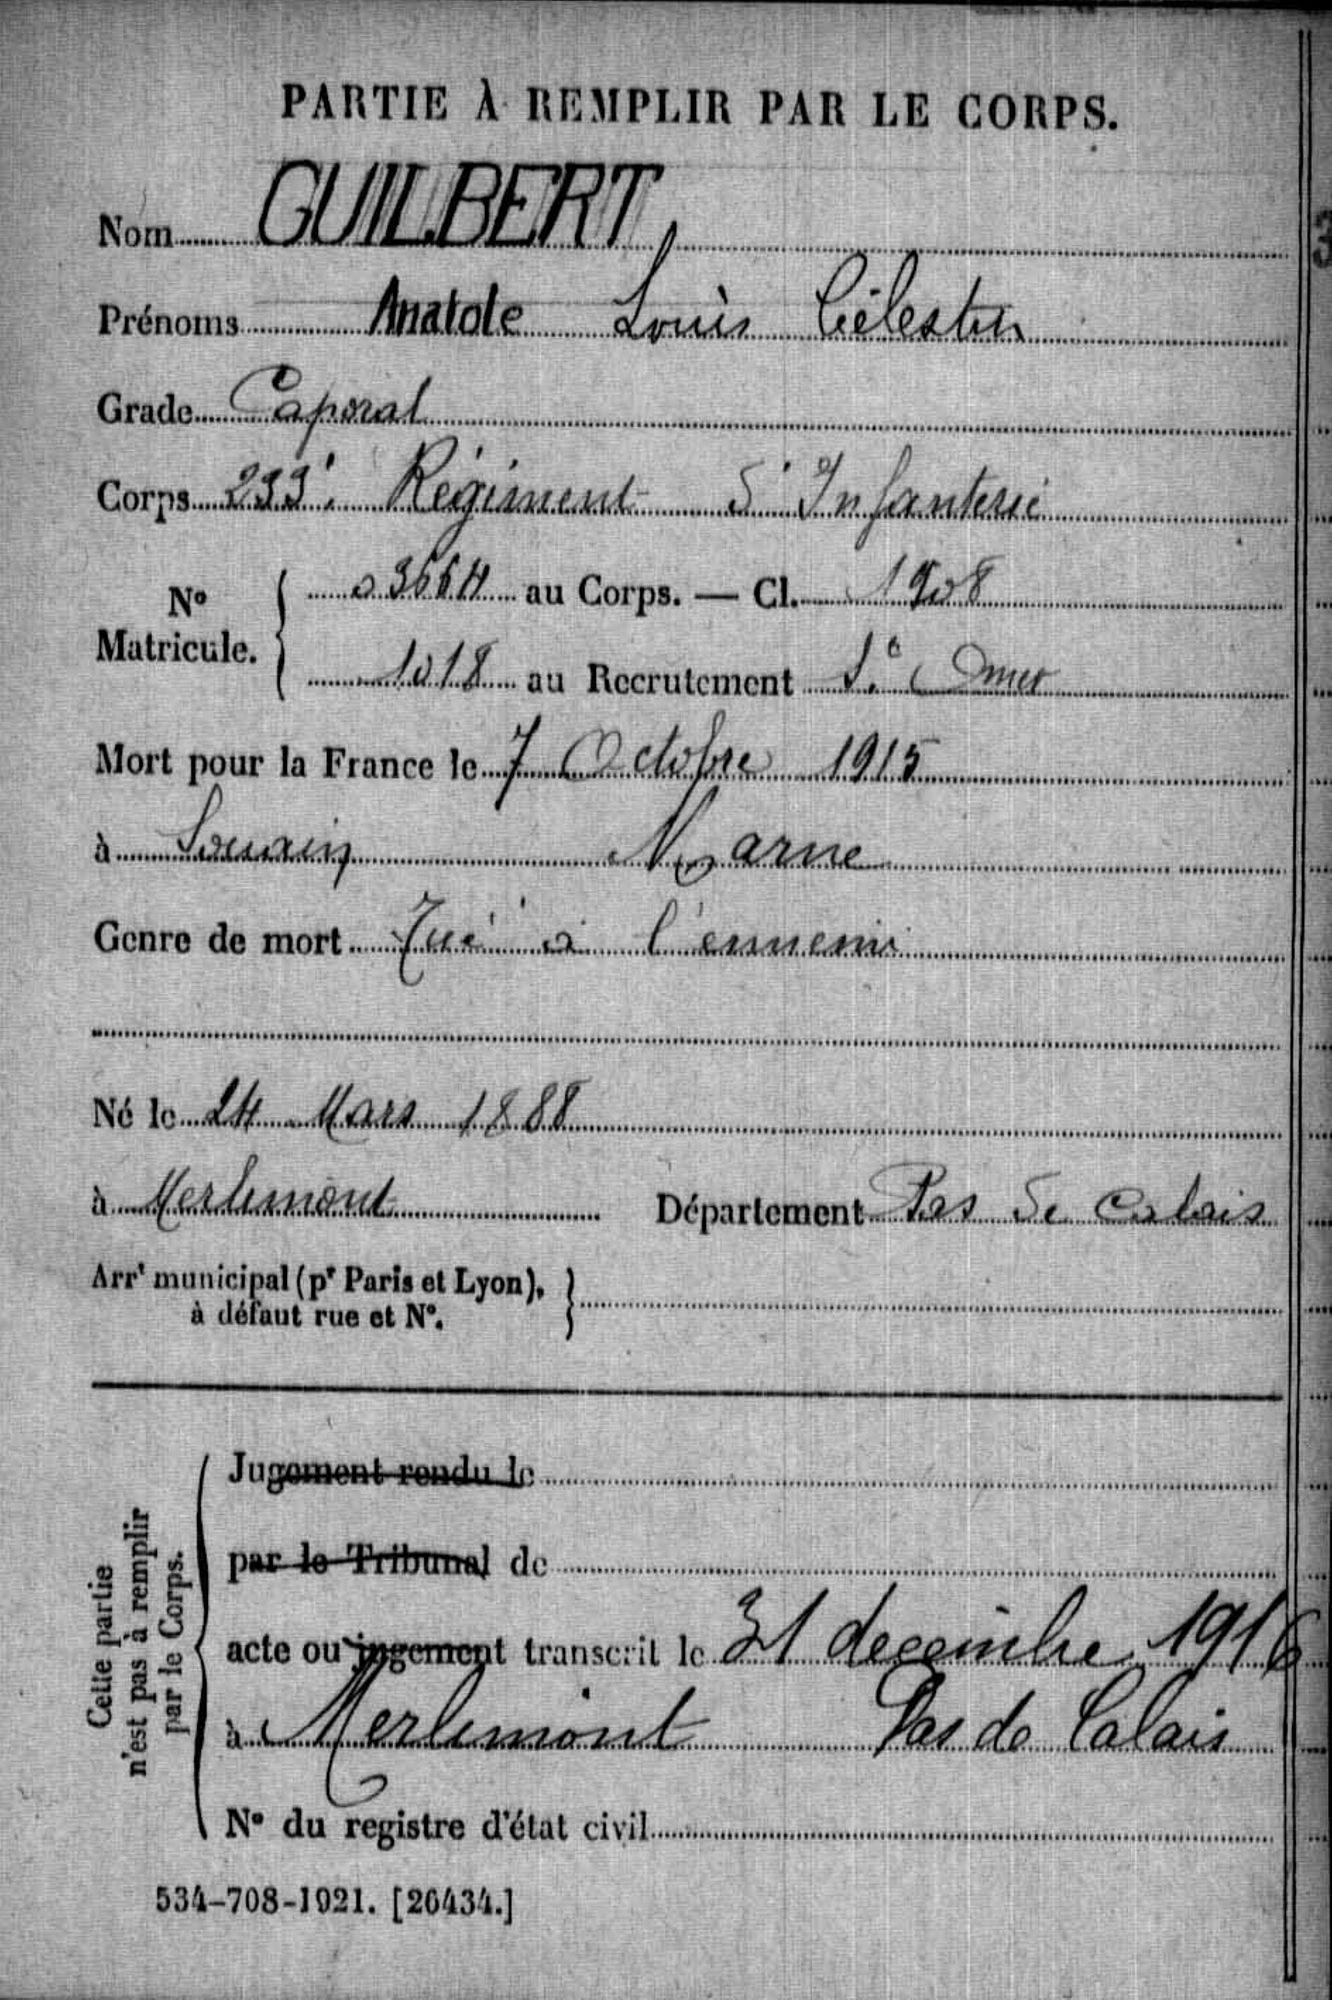 PARTIE À REMPLIR PAR LE CORPS.
Nom GUILBERT
Prénoms Anatole Louis Célestin
Grade Caporal
Corps 233e Régiment d'Infanterie
No Matricule. 03664 au Corps. — Cl. 1908
1018 au Recrutement St Omer
Mort pour la France le 7 Octobre 1915
à Souain Marne
Genre de mort Tué à l'ennemi
Né le 24 Mars 1888
à Merlimont Département Pas de Calais
Arrt municipal (pr Paris et Lyon),
à défaut rue et No.
Cette partie
n'est pas à remplir
par le Corps.
Jugement rendu le
par le Tribunal de
acte ou jugement transcrit le 31 decembre 1916
à Merlimont Pas de Calais
No du registre d'état civil
534-708-1921. [26434.]